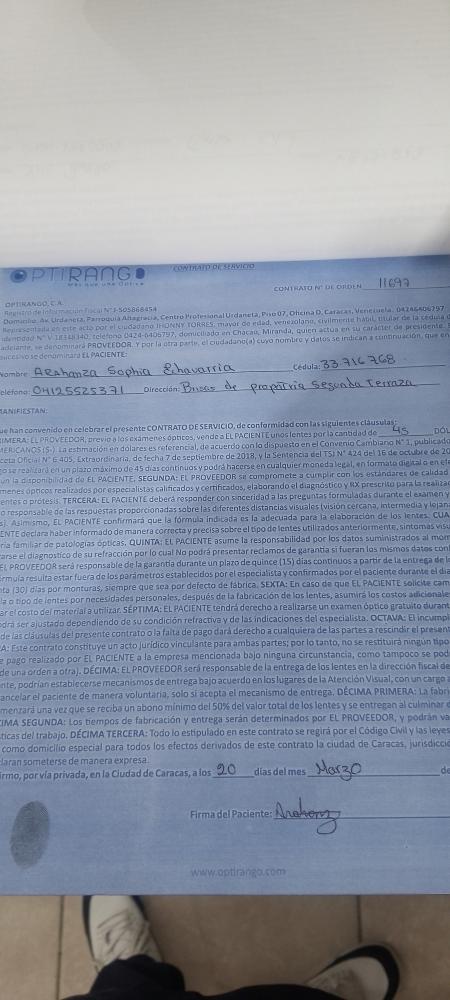 OPTIRANGO
Más que una Óptica
CONTRATO DE SERVICIO
CONTRATO N° DE ORDEN 11697
OPTIRANGO, C.A.
Registro de Información Fiscal N°J-505868454
Domicilio: Av. Urdaneta, Parroquia Altagracia, Centro Profesional Urdaneta, Piso 07, Oficina D, Caracas, Venezuela. 04246406797
Representada en este acto por el ciudadano JHONNY TORRES, mayor de edad, venezolano, civilmente hábil, titular de la cédula d
identidad N° V-18348340, teléfono 0424-6406797, domiciliado en Chacao, Miranda, quien actúa en su carácter de presidente.
adelante, se denominará PROVEEDOR. Y por la otra parte, el ciudadano(a) cuyo nombre y datos se indican a continuación, que en
sucesivo se denominará EL PACIENTE:
Nombre: Arahanza Sophia Echavarria Cédula: 33 716 768
eléfono: 04125525371 Dirección: Brisas de propatria Segunda Terraza
MANIFIESTAN:
ue han convenido en celebrar el presente CONTRATO DE SERVICIO, de conformidad con las siguientes cláusulas:
IMERA: EL PROVEEDOR, previo a los exámenes ópticos, vende a EL PACIENTE unos lentes por la cantidad de 45 DÓL
MERICANOS ($-). La estimación en dólares es referencial, de acuerdo con lo dispuesto en el Convenio Cambiario N° 1, publicado
ceta Oficial N° 6.405, Extraordinaria, de fecha 7 de septiembre de 2018, y la Sentencia del TSJ N° 424 del 16 de octubre de 20
go se realizará en un plazo máximo de 45 días continuos y podrá hacerse en cualquier moneda legal, en formato digital o en efe
ún la disponibilidad de EL PACIENTE. SEGUNDA: EL PROVEEDOR se compromete a cumplir con los estándares de calidad
menes ópticos realizados por especialistas calificados y certificados, elaborando el diagnóstico y RX prescrito para la realizac
entes o prótesis. TERCERA: EL PACIENTE deberá responder con sinceridad a las preguntas formuladas durante el examen y
o responsable de las respuestas proporcionadas sobre las diferentes distancias visuales (visión cercana, intermedia y lejan
s). Asimismo, EL PACIENTE confirmará que la fórmula indicada es la adecuada para la elaboración de los lentes. CUA
ENTE declara haber informado de manera correcta y precisa sobre el tipo de lentes utilizados anteriormente, síntomas visu
ria familiar de patologías ópticas. QUINTA: EL PACIENTE asume la responsabilidad por los datos suministrados al mom
arse el diagnostico de su refracción por lo cual No podrá presentar reclamos de garantía si fueran los mismos datos con
EL PROVEEDOR será responsable de la garantía durante un plazo de quince (15) días continuos a partir de la entrega de l
órmula resulta estar fuera de los parámetros establecidos por el especialista y confirmados por el paciente durante el dia
nta (30) días por monturas, siempre que sea por defecto de fábrica. SEXTA: En caso de que EL PACIENTE solicite cam
la o tipo de lentes por necesidades personales, después de la fabricación de los lentes, asumirá los costos adicionale
ar el costo del material a utilizar. SÉPTIMA: EL PACIENTE tendrá derecho a realizarse un examen óptico gratuito durant
drá ser ajustado dependiendo de su condición refractiva y de las indicaciones del especialista. OCTAVA: El incumpl
de las cláusulas del presente contrato o la falta de pago dará derecho a cualquiera de las partes a rescindir el present
A: Este contrato constituye un acto jurídico vinculante para ambas partes; por lo tanto, no se restituirá ningún tipo
e pago realizado por EL PACIENTE a la empresa mencionada bajo ninguna circunstancia, como tampoco se pod
de una orden a otra). DÉCIMA: EL PROVEEDOR será responsable de la entrega de los lentes en la dirección fiscal de
nte, podrían establecerse mecanismos de entrega bajo acuerdo en los lugares de la Atención Visual, con un cargo
ancelar el paciente de manera voluntaria, solo si acepta el mecanismo de entrega. DÉCIMA PRIMERA: La fabri
menzará una vez que se reciba un abono mínimo del 50% del valor total de los lentes y se entregan al culminar e
IMA SEGUNDA: Los tiempos de fabricación y entrega serán determinados por EL PROVEEDOR, y podrán va
ticas del trabajo. DÉCIMA TERCERA: Todo lo estipulado en este contrato se regirá por el Código Civil y las leyes
como domicilio especial para todos los efectos derivados de este contrato la ciudad de Caracas, jurisdicció
laran someterse de manera expresa.
irmo, por vía privada, en la Ciudad de Caracas, a los 20 días del mes Marzo de
Firma del Paciente: Arahanz
www.optirango.com